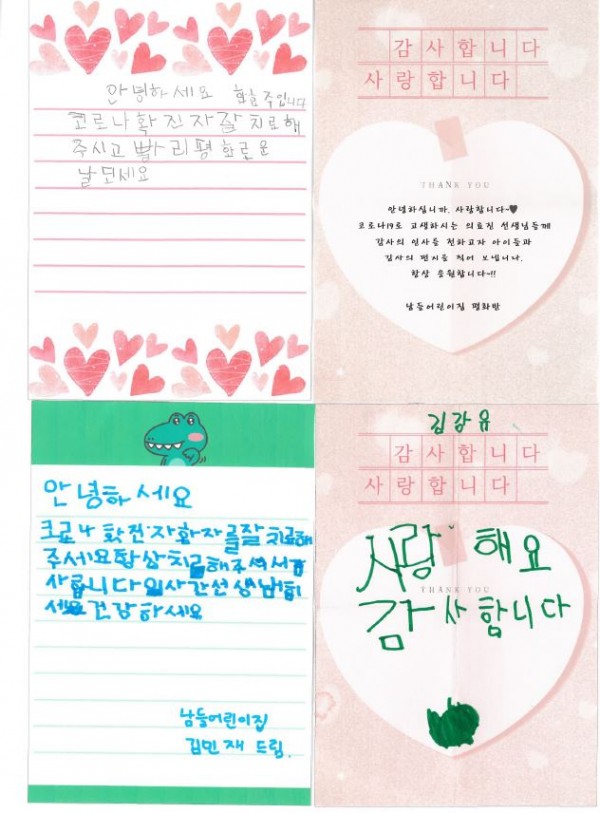 안녕하세요
코로나확진자잘치료해
주시고 빨리평화로운
날되세요
감사합니다
사랑합니다
THANK YOU
안녕하십니까. 사랑합니다~♥
코로나19로 고생하시는 의료진 선생님들께
감사의 인사를 전하고자 아이들과
감사의 편지를 적어 보냅니다.
항상 응원합니다~!!
남들어린이집 평화반
안녕하세요
코로나 확진자환자를잘치료해
주세요항상치료해주셔서감
사합니다 의사간선생님힘
세요건강하세요
남들어린이집
김민재 드림.
김강유
감사합니다
사랑합니다
사랑해요
THANK YOU
감사합니다